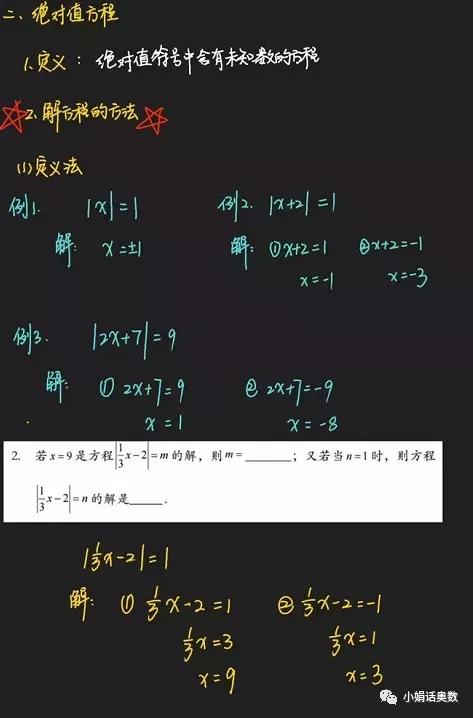 二、绝对值方程
1.定义：绝对值符号中含有未知数的方程
2.解方程的方法
(1)定义法
例1. |x|=1 例2. |x+2|=1
解: x=±1 解: ①x+2=1 ②x+2=-1
x=-1 x=-3
例3. |2x+7|=9
解: ① 2x+7=9 ② 2x+7=-9
x=1 x=-8
2. 若x=9是方程|1/3x-2|=m的解，则m=______；又若当n=1时，则方程
|1/3x-2|=n的解是_____.
|1/3x-2|=1
解: ① 1/3x-2=1 ② 1/3x-2=-1
1/3x=3 1/3x=1
x=9 x=3
小娟话奥数